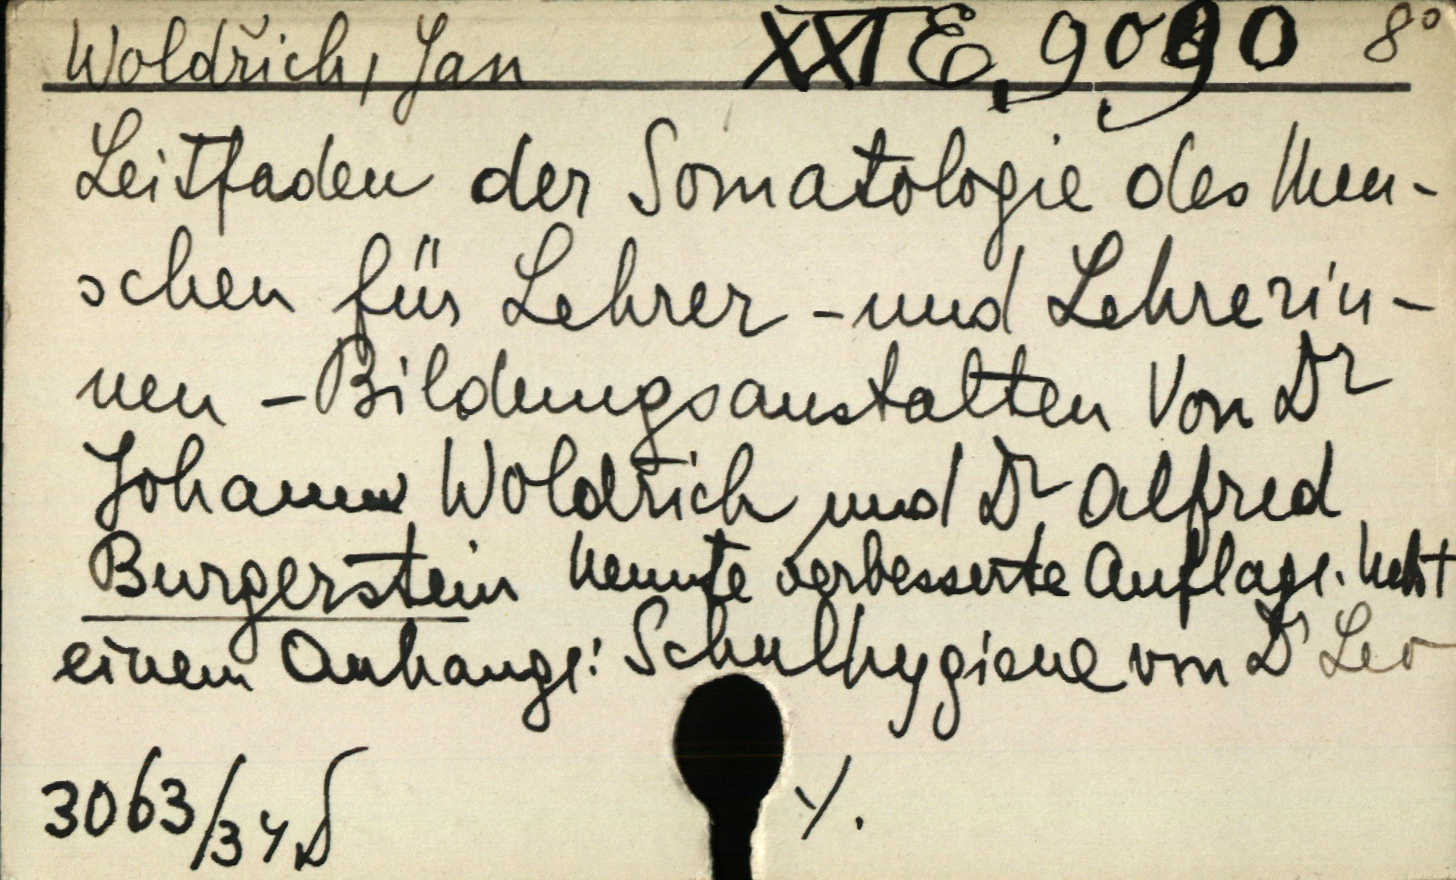 Woldřich, Jan XXI E, 9090 8°
Leitfaden der Somatologie des Men-
schen für Lehrer - und Lehrerin-
nen - Bildungsanstalten Von Dr
Johann Woldřich und Dr Alfred
Burgerstein Neunte verbesserte Auflage. Nebst
einem Anhange: Schulhygiene von Dr Leo
3063/34 D ./.